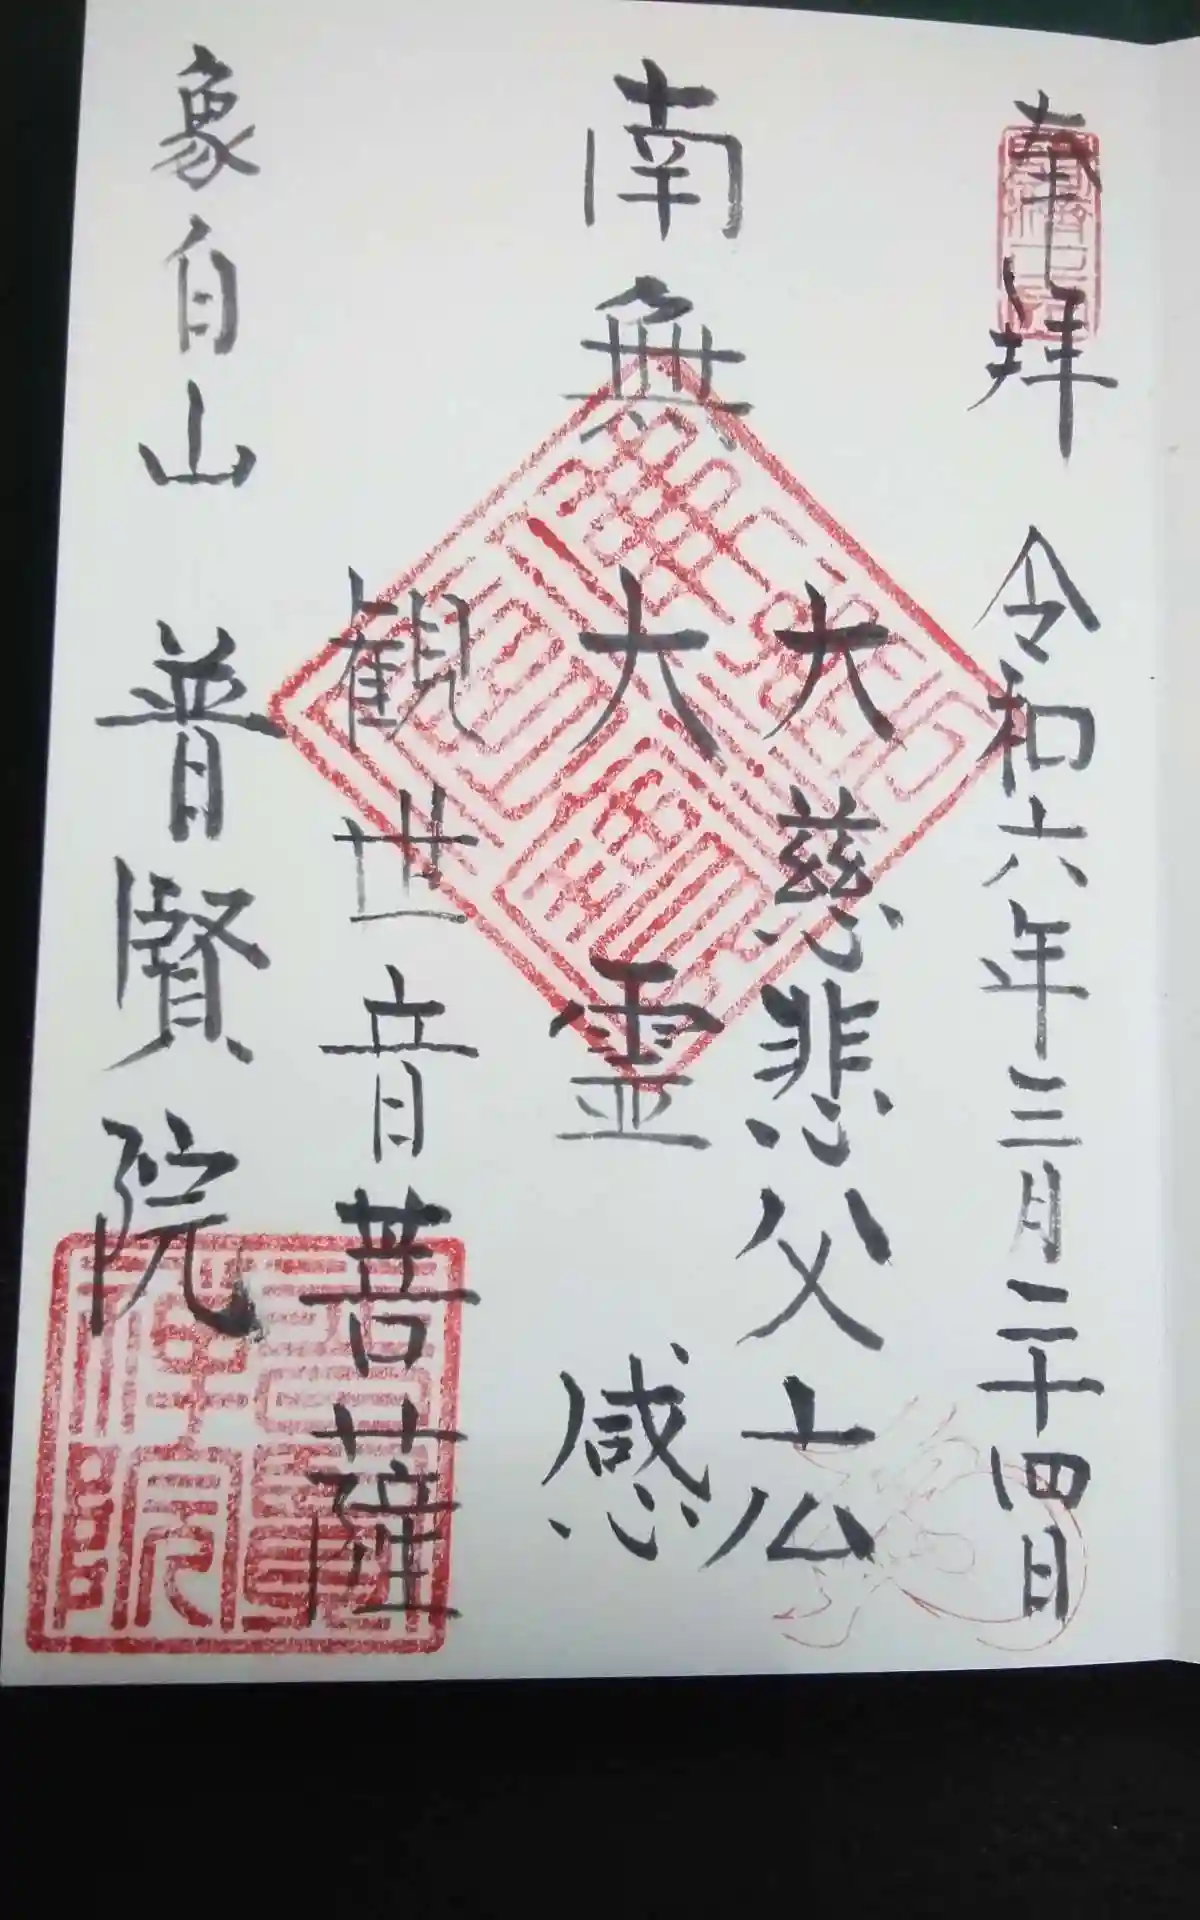 奉拝 令和六年三月二十四日
大慈悲父公
南無大霊感
観世音菩薩
象自山 普賢院